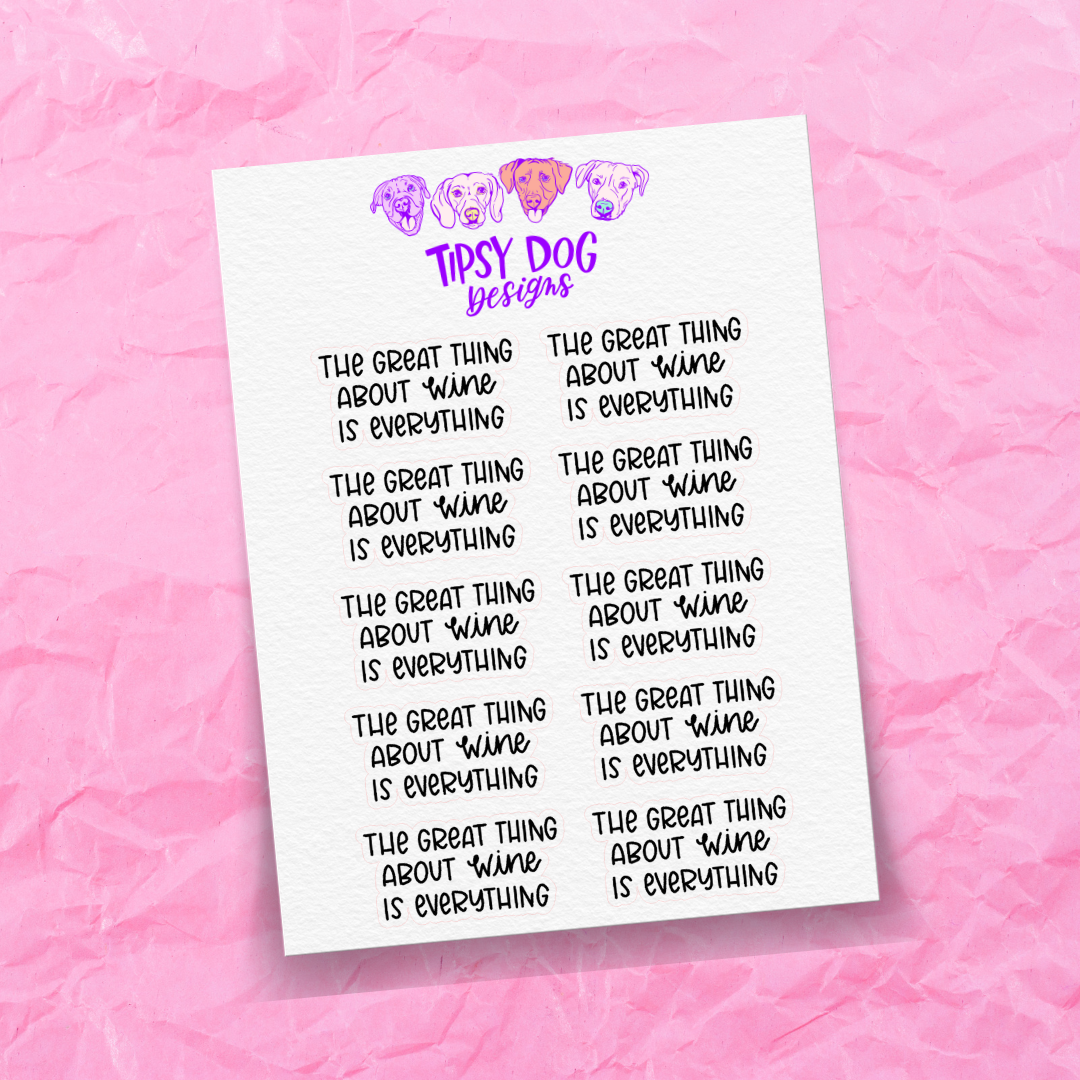 TIPSY DOG
Designs
THE GREAT THING
ABOUT wine
IS EVERYTHING
THE GREAT THING
ABOUT wine
IS EVERYTHING
THE GREAT THING
ABOUT wine
IS EVERYTHING
THE GREAT THING
ABOUT wine
IS EVERYTHING
THE GREAT THING
ABOUT wine
IS EVERYTHING
THE GREAT THING
ABOUT wine
IS EVERYTHING
THE GREAT THING
ABOUT wine
IS EVERYTHING
THE GREAT THING
ABOUT wine
IS EVERYTHING
THE GREAT THING
ABOUT wine
IS EVERYTHING
THE GREAT THING
ABOUT wine
IS EVERYTHING